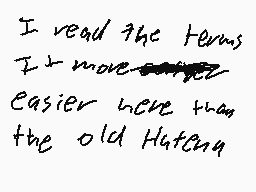 I read the terms
It more
easier here than
the old Hatena